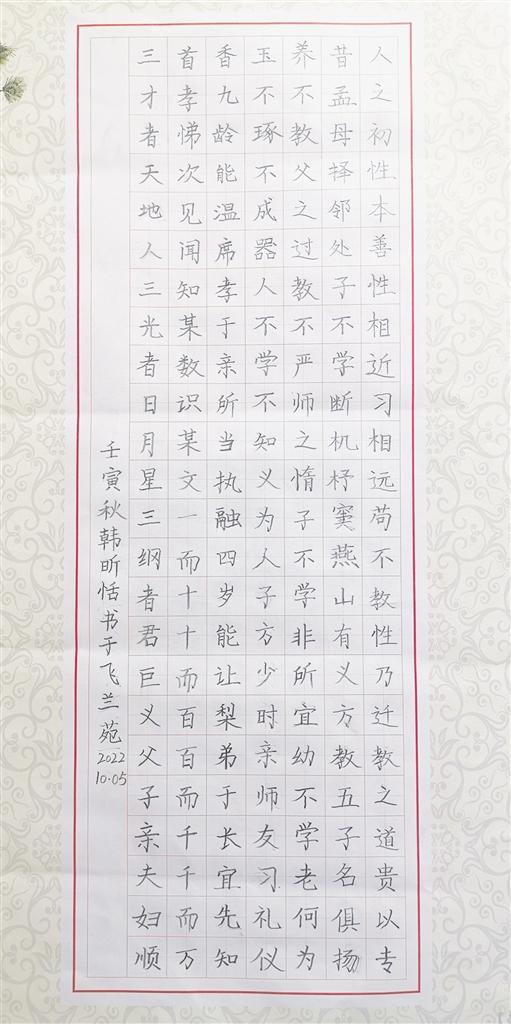 人之初性本善性相近习相远苟不教性乃迁教之道贵以专
昔孟母择邻处子不学断机杼窦燕山有义方教五子名俱扬
养不教父之过教不严师之惰子不学非所宜幼不学老何为
玉不琢不成器人不学不知义为人子方少时亲师友习礼仪
香九龄能温席孝于亲所当执融四岁能让梨弟于长宜先知
首孝悌次见闻知某数识某文一而十十而百百而千千而万
三才者天地人三光者日月星三纲者君巨义父子亲夫妇顺
壬寅秋韩昕恬书于飞兰苑2022
10.05